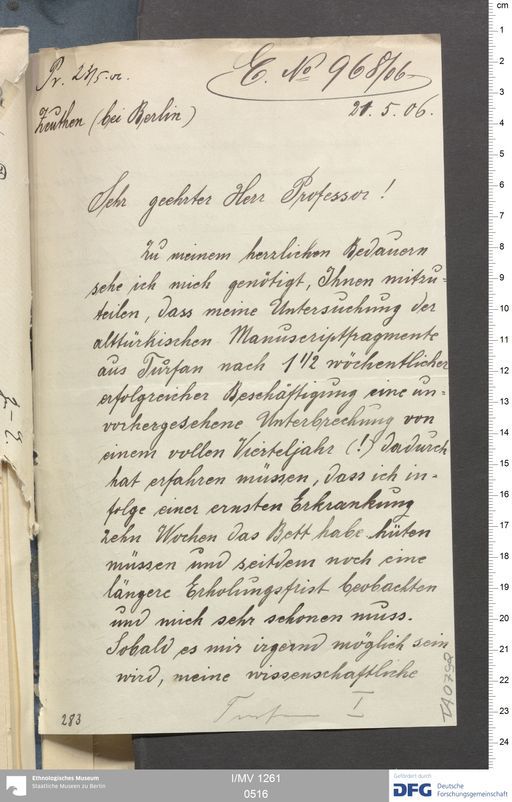 Pr. 23/5. 06.
E. No 968/06
Zeuthen (bei Berlin)
21. 5. 06.
Sehr geehrter Herr Professor!
Zu meinem herzlichen Bedauern
sehe ich mich genötigt, Ihnen mitzu-
teilen, dass meine Untersuchung der
alttürkischen Manuscriptfragmente
aus Turfan nach 1 1/2 wöchentlicher
erfolgreicher Beschäftigung eine un-
vorhergesehene Unterbrechung von
einem vollen Vierteljahr (!) dadurch
hat erfahren müssen, dass ich in-
folge einer ernsten Erkrankung
zehn Wochen das Bett habe hüten
müssen und seitdem noch eine
längere Erholungsfrist beobachten
und mich sehr schonen muss.
Sobald es mir irgend möglich sein
wird, meine wissenschaftliche
Turfan I
283
Ethnologisches Museum
Staatliche Museen zu Berlin
I/MV 1261
0516
Gefördert durch
DFG Deutsche
Forschungsgemeinschaft
cm
1
2
3
4
5
6
7
8
9
10
11
12
13
14
15
16
17
18
19
20
21
22
23
24